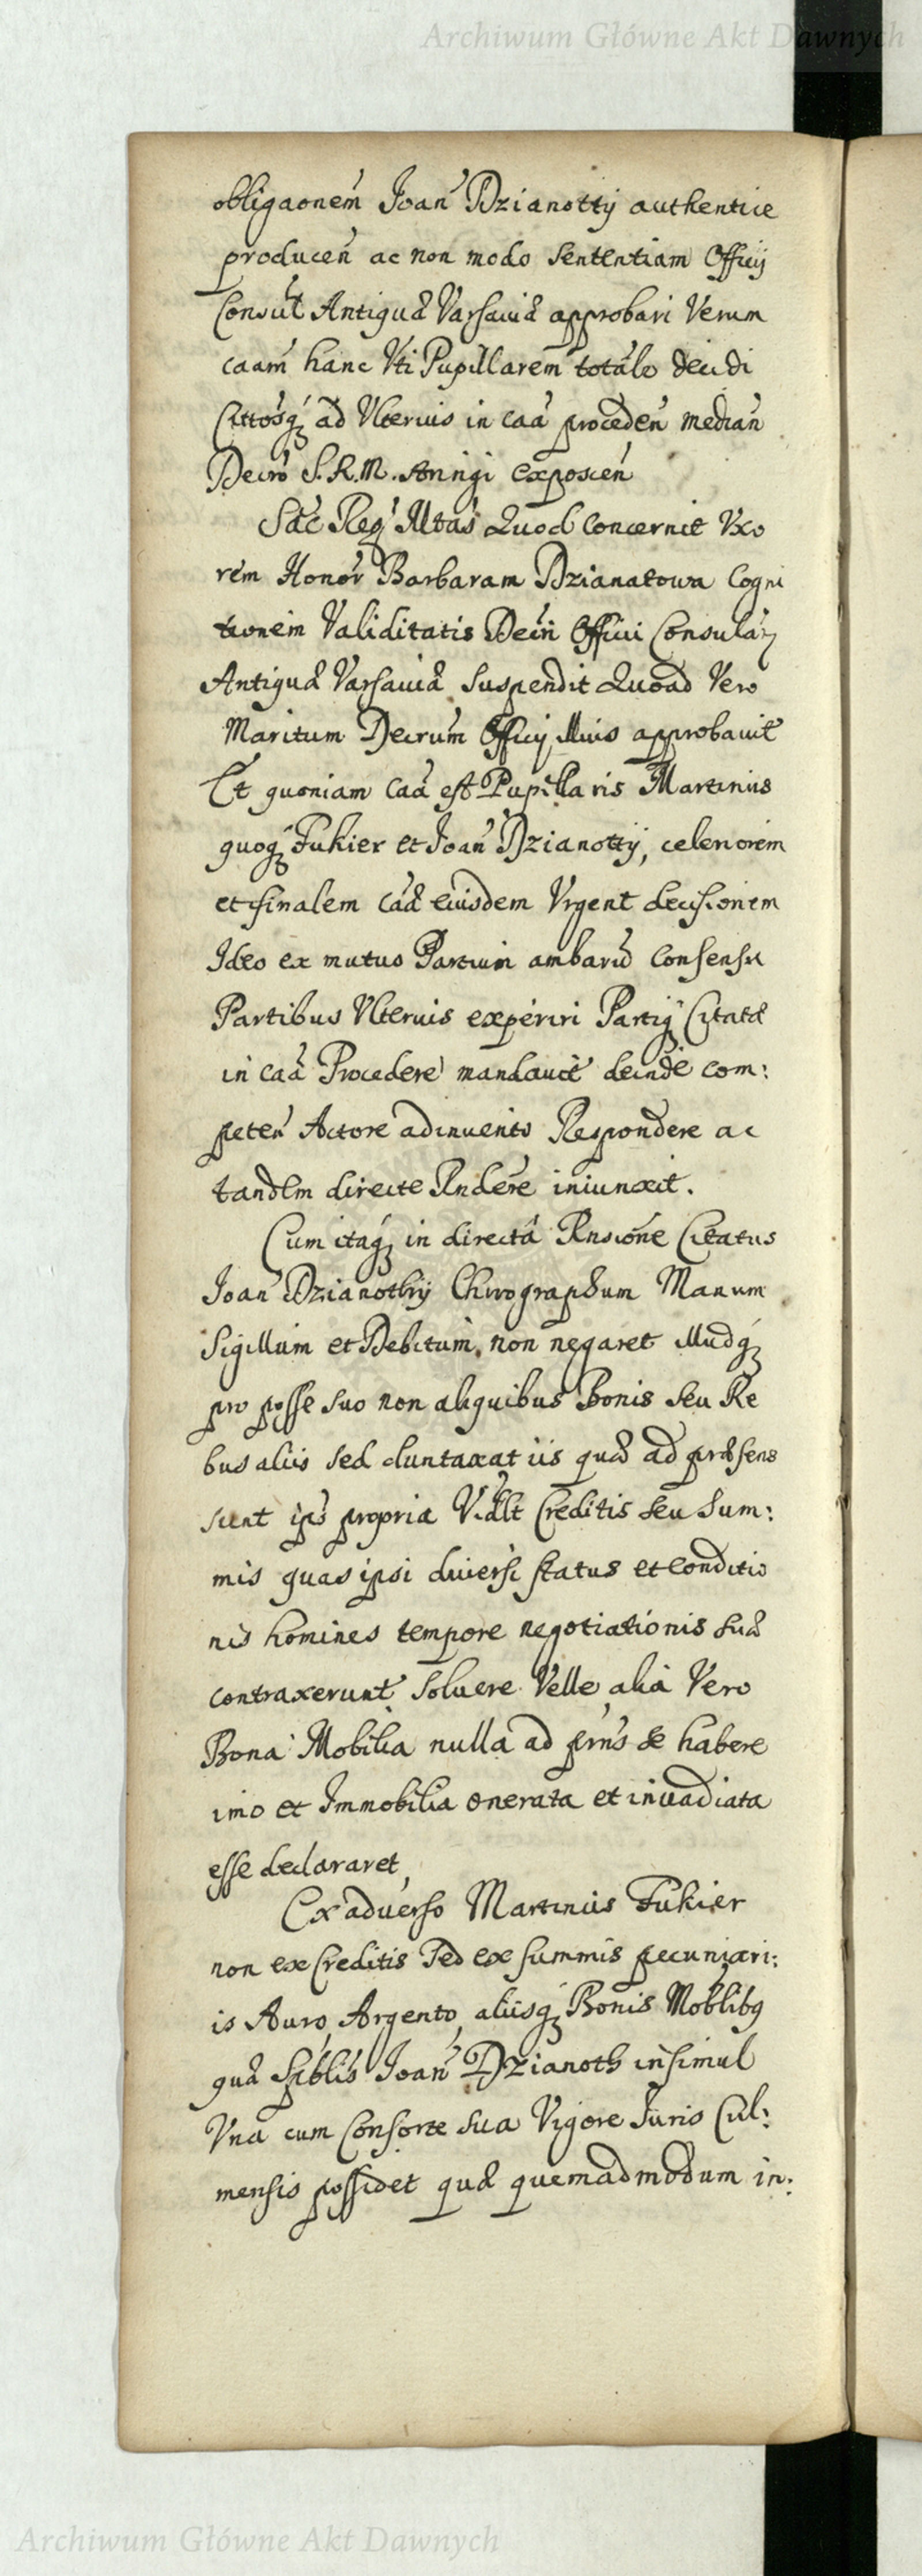 Archiwum Główne Akt Dawnych
obligaonem Joan Dzianotty authentice
producen ac non modo sententiam Officij
Consul Antiquæ Varsauiæ approbari Verum
caam hanc Vti Pupillarem totale decidi
Cittosq ad Vlterius in caa proceden median
Decro S.R.M. exposcen
Sac Reg Mtas Quod concernit Vxo
rem Honor Barbaram Dzianatowa Cogni
tionem Validitatis Decri Officii Consular
Antiquæ Varsauiæ suspendit Quoad Vero
Maritum Decrum Officij illius approbauit
Et quoniam Caa est Pupillaris Martinus
quoq Fukier et Joan Dzianotty, celeriorem
et finalem Caæ eiusdem Vrgent decisionem
Ideo ex mutuo Partium ambarum Consensu
Partibus Vlterius experiri Partiq Citatæ
in caa Procedere mandauit deinde com:
peten Actore adinuento Respondere ac
tandem directe Rndere iniunxit.
Cum itaq in directa Rnsione Citatus
Joan Dzianothy Chirographum Manum
Sigillum et Debitum, non negaret illudq
pro posse suo non aliquibus Bonis seu Re
bus aliis sed duntaxat iis quæ ad præsens
sunt ips propria Vidlt Creditis seu Sum:
mis quas ipsi diuersi status et conditio
nis homines tempore negotiationis suæ
contraxerunt soluere Velle alia Vero
Bona Mobilia nulla ad prns se habere
imo et Immobilia onerata et inuadiata
esse declararet,
Ex aduerso Martinus Fukier
non ex Creditis Sed ex summis pecuniari:
is Auro, Argento, aliisq Bonis Moblibq
quæ Joan Dzianoth insimul
Vna cum Consorte sua Vigore Iuris Cul:
mensis possidet quæ quemadmodum in:
Archiwum Główne Akt Dawnych